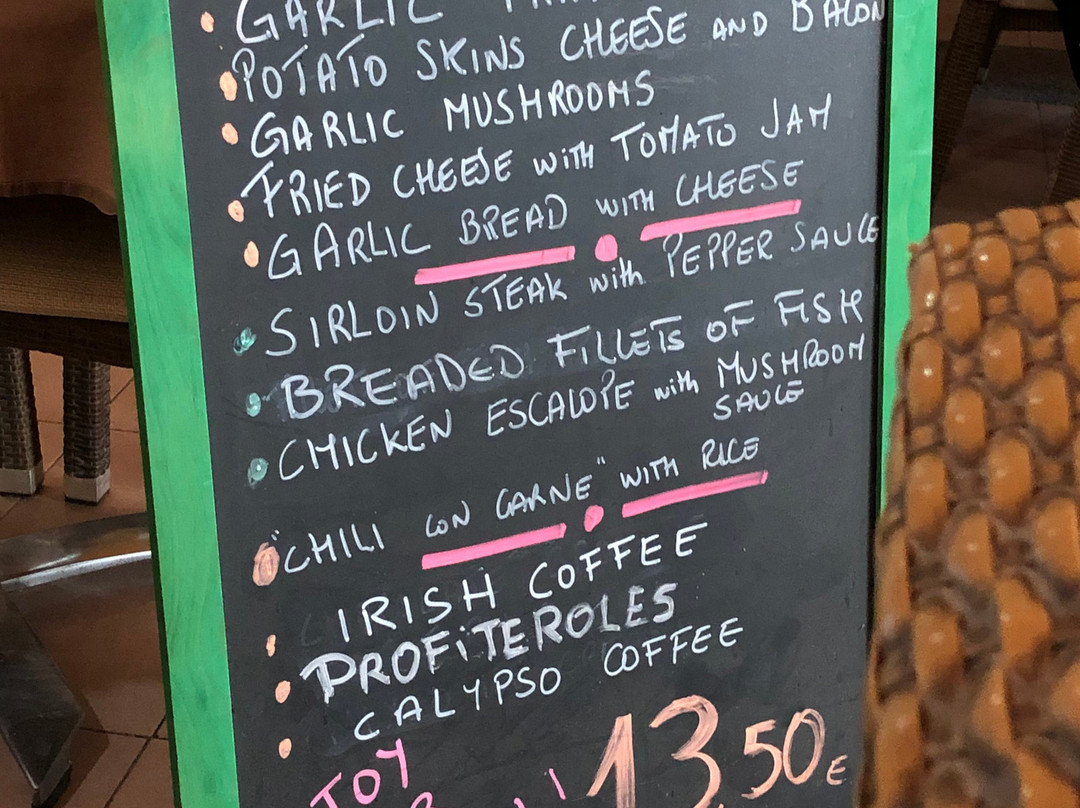 GARLIC
POTATO SKINS CHEESE AND BACON
GARLIC MUSHROOMS
FRIED CHEESE with TOMATO JAM
GARLIC BREAD with CHEESE
SIRLOIN STEAK with PEPPER SAUCE
BREADED FILLETS OF FISH
CHICKEN ESCALOPE with MUSHROOM
SAUCE
"CHILI CON CARNE" WITH RICE
IRISH COFFEE
PROFiTEROLES
CALYPSO COFFEE
13,50E